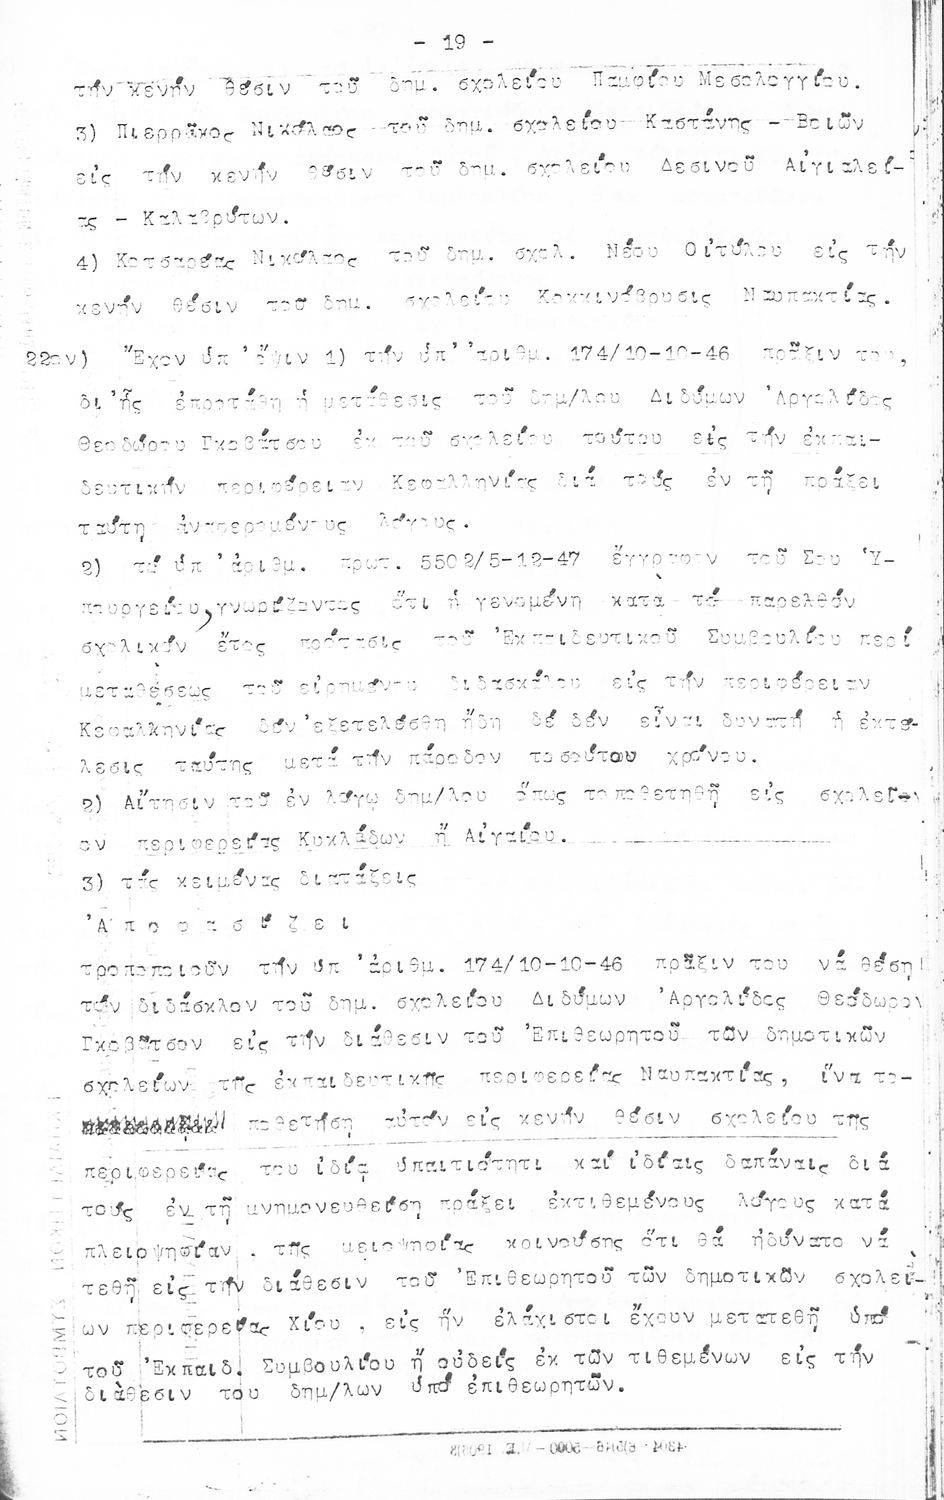 - 19 -
τήν κενήν θέσιν τοῦ δημ. σχολείου Παμφίου Μεσολογγίου.
3) Πιερρᾶκος Νικόλαος τοῦ δημ. σχολείου Καστάνης - Βοιῶν
εἰς τήν κενήν θέσιν τοῦ δημ. σχολείου Δεσινοῦ Αἰγιαλεί-
ας - Καλαβρύτων.
4) Κοτσαρέας Νικόλαος τοῦ δημ. σχολ. Νέου Οἰτύλου εἰς τήν
κενήν θέσιν τοῦ δημ. σχολείου Κοκκινόβρυσις Ναυπακτίας.
22ον) Ἔχον ὑπ'ὄψιν 1) τήν ὑπ' ἀριθμ. 174/10-10-46 πρᾶξιν του,
δι'ἧς ἐπροτάθη ἡ μετάθεσις τοῦ δημ/λου Διδύμων Ἀργολίδος
Θεοδώρου Γκοβάτσου ἐκ τοῦ σχολείου τούτου εἰς τήν ἐκπαι-
δευτικήν περιφέρειαν Κεφαλληνίας διά τούς ἐν τῇ πράξει
ταύτη ἀναφερομένους λόγους.
2) τό ὑπ'ἀριθμ. πρωτ. 5502/5-12-47 ἔγγραφον τοῦ Σου Ὑ-
πουργείου, γνωρίζοντος ὅτι ἡ γενομένη κατά τό παρελθόν
σχολικόν ἔτος πρότασις τοῦ Ἐκπαιδευτικοῦ Συμβουλίου περί
μεταθέσεως τοῦ εἰρημένου διδασκάλου εἰς τήν περιφέρειαν
Κεφαλληνίας δέν ἐξετελέσθη ἤδη δέ δέν εἶναι δυνατή ἡ ἐκτέ-
λεσις ταύτης μετά τήν πάροδον τοσούτου χρόνου.
2) Αἴτησιν τοῦ ἐν λόγῳ δημ/λου ὅπως τοποθετηθῇ εἰς σχολεῖ-
ον περιφερείας Κυκλάδων ἤ Αἰγαίου.
3) τάς κειμένας διατάξεις
Ἀ π ο φ α σ ί ζ ε ι
τροποποιοῦν τήν ὑπ'ἀριθμ. 174/10-10-46 πρᾶξιν του νά θέση
τόν διδάσκλον τοῦ δημ. σχολείου Διδύμων Ἀργολίδος Θεόδωρον
Γκοβᾶτσον εἰς τήν διάθεσιν τοῦ Ἐπιθεωρητοῦ τῶν δημοτικῶν
σχολείων τῆς ἐκπαιδευτικῆς περιφερείας Ναυπακτίας, ἵνα το-
ποθετήση αὐτόν εἰς κενήν θέσιν σχολείου τῆς
περιφερείας του ἰδίᾳ ὑπαιτιότητι καί ἰδίαις δαπάναις διά
τούς ἐν τῇ μνημονευθείσῃ πράξει ἐκτιθεμένους λόγους κατά
πλειοψηφίαν , τῆς μειοψηφίας κοινούσης ὅτι θά ἠδύνατο νά
τεθῇ εἰς τήν διάθεσιν τοῦ Ἐπιθεωρητοῦ τῶν δημοτικῶν σχολεί-
ων περιφερείας Χίου , εἰς ἥν ἐλάχιστοι ἔχουν μετατεθῇ ὑπό
τοῦ Ἐκπαιδ. Συμβουλίου ἤ οὐδείς ἐκ τῶν τιθεμένων εἰς τήν
διάθεσιν του δημ/λων ὑπό ἐπιθεωρητῶν.